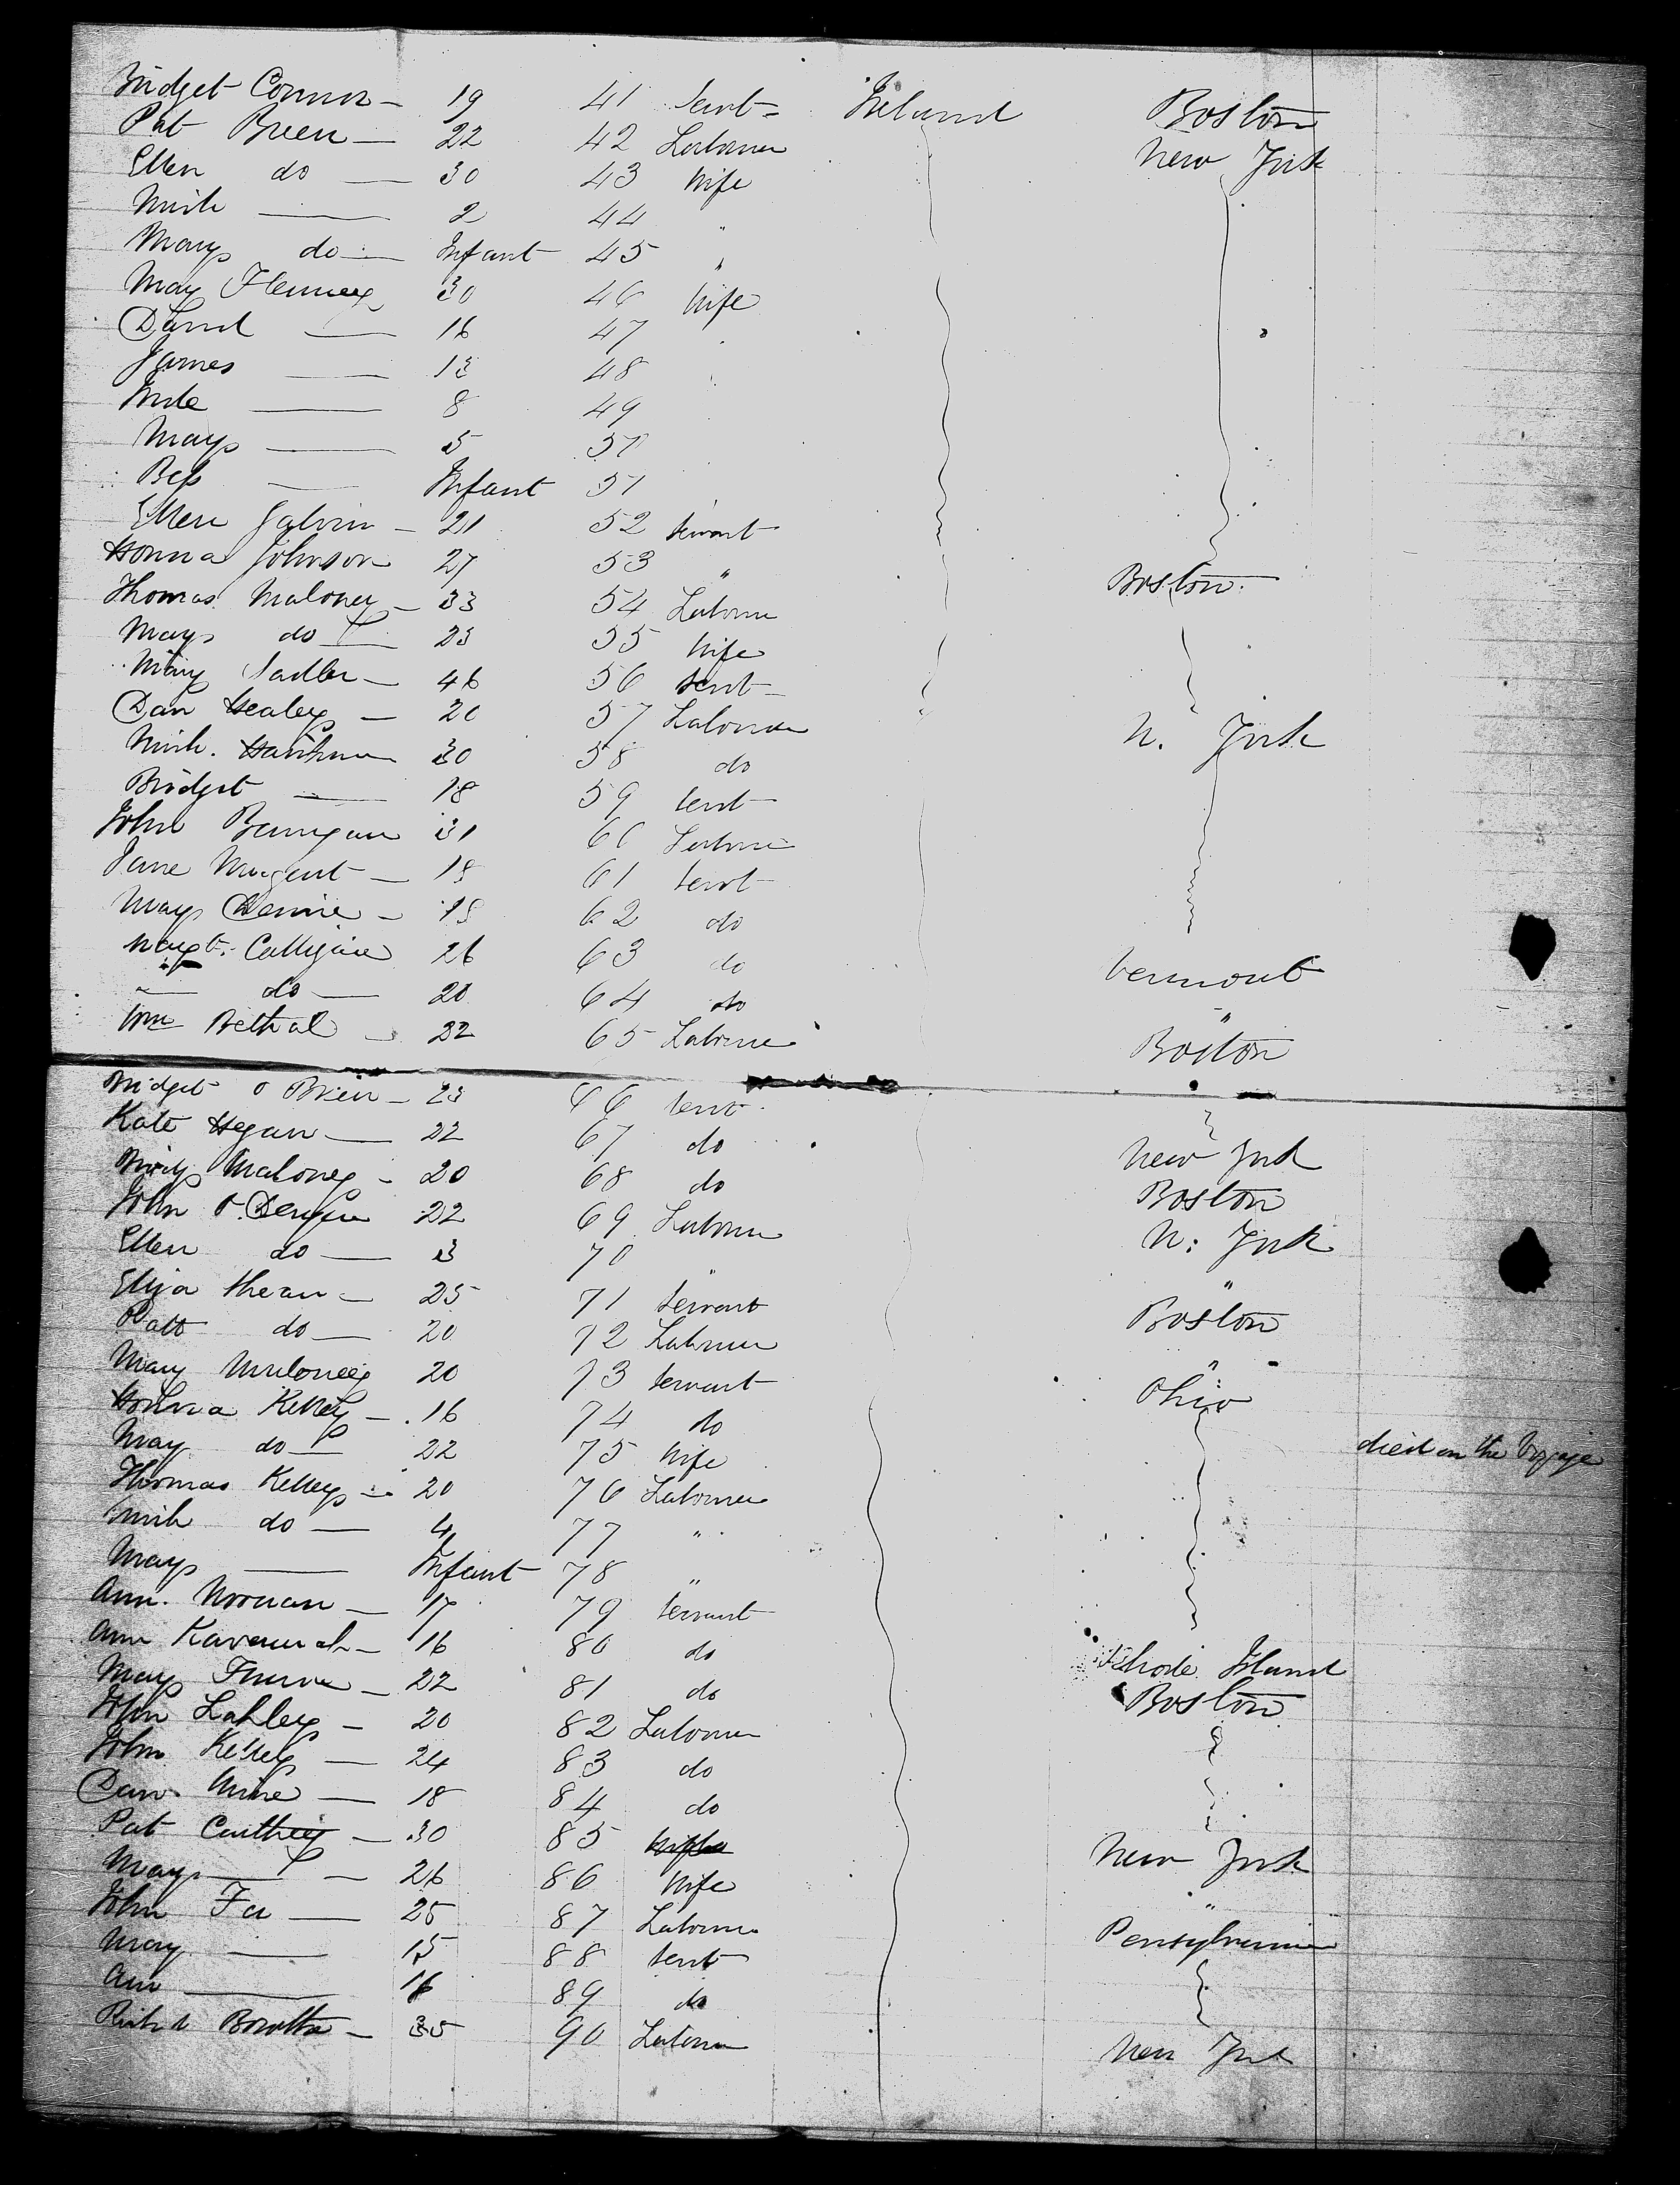 Bridget Connor - 19 41 Servt - Ireland Boston
Pat Breen - 22 42 Labourer New York
Ellen do - 30 43 Wife
Mich - 2 44 "
Mary do - Infant 45 "
Mary Flenney 30 46 Wife
David - 16 47
James - 13 48
Mich - 8 49
Mary - 5 50
Bess - Infant 51
Ellen Galvin - 21 52 Servant
Honna Johnson 27 53 " Boston
Thomas Maloney - 33 54 Labourer
Mary do - 23 55 Wife
Mary Sadler - 46 56 Servt -
Dan Healey - 20 57 Labourer N. York
Mich. 30 58 do
Bridget - 18 59 Servt
John 31 60 Labourer
Jane Nugent - 18 61 Servt
Mary - 18 62 do
Margt. 26 63 do Vermont
- do - 20 64 do "
Wm Bethal - 22 65 Labourer Boston
Bridget O Brien - 23 66 Servt
Kate Hegan - 22 67 do New York
Mary Maloney - 20 68 do Boston
John O. 22 69 Labourer N. York
Ellen do - 3 70 " "
Eliza 25 71 Servant Boston
Patt do - 20 72 Labourer "
Mary Muloney 20 73 Servant Ohio
Honna Kelley - 16 74 do
Mary do - 22 75 Wife died on the Voyage
Thomas Kelley - 20 76 Labourer
Mich do - 4 77 "
Mary - Infant 78 "
Ann. Noonan - 17 79 Servant
Ann Kavanah - 16 80 do Rhode Island
Mary - 22 81 do Boston
John Lahley - 20 82 Labourer
John Kelley - 24 83 do
Dan. - 18 84 do
Pat - 30 85 New York
Mary - 26 86 Wife "
John - 25 87 Labourer Pensylvania
Mary - 15 88 Servt
Ann - 16 89 do
- 35 90 Labourer New York